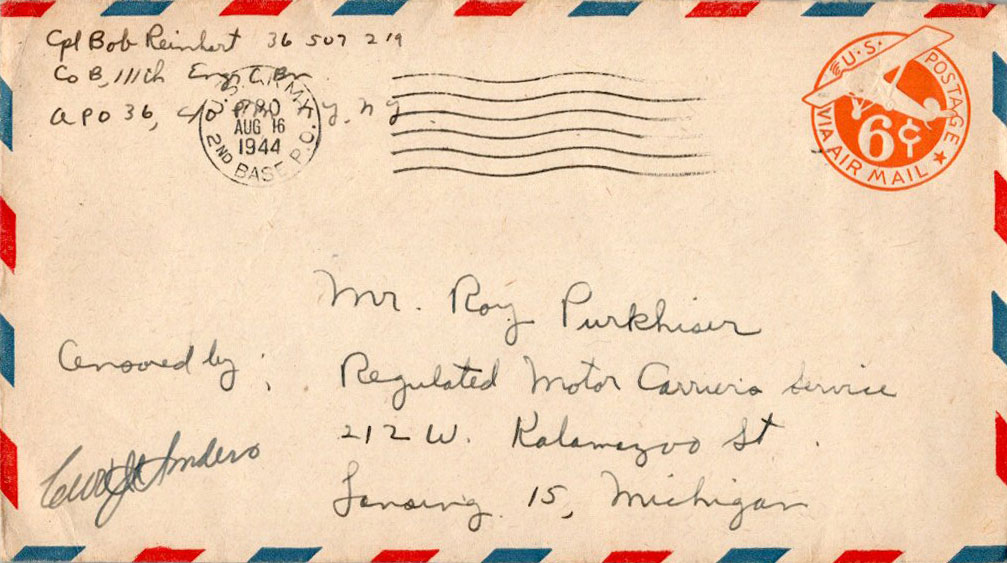 Cpl Bob Reinhart 36 507 219
Co B, 111th Engr C. Bn
APO 36, c/o P.M., N.Y., N.Y
U.S. ARMY
AUG 16
1944
2ND BASE P.O.
U.S. POSTAGE
6¢
VIA AIR MAIL
Mr. Roy Purkhiser
Censored by;
Regulated Motor Carriers Service
212 W. Kalamazoo St.
Lansing 15, Michigan